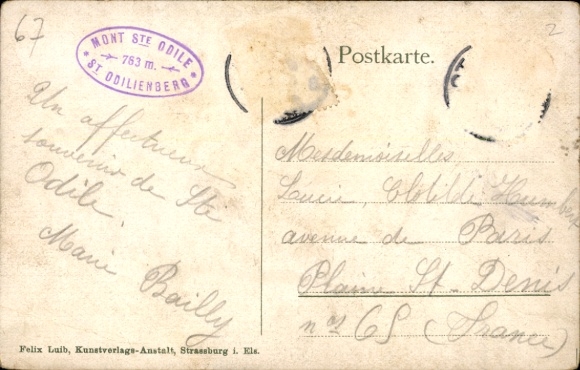 67
2
MONT STE ODILE
763 m.
ST ODILIENBERG
Postkarte.
Un affectueux
souvenir de Ste
Odile.
Marie Bailly
Mesdemoiselles
Lucie, Clotilde
avenue de Paris
Plaine St-Denis
no 65 (France)
Felix Luib, Kunstverlags-Anstalt, Strassburg i. Els.